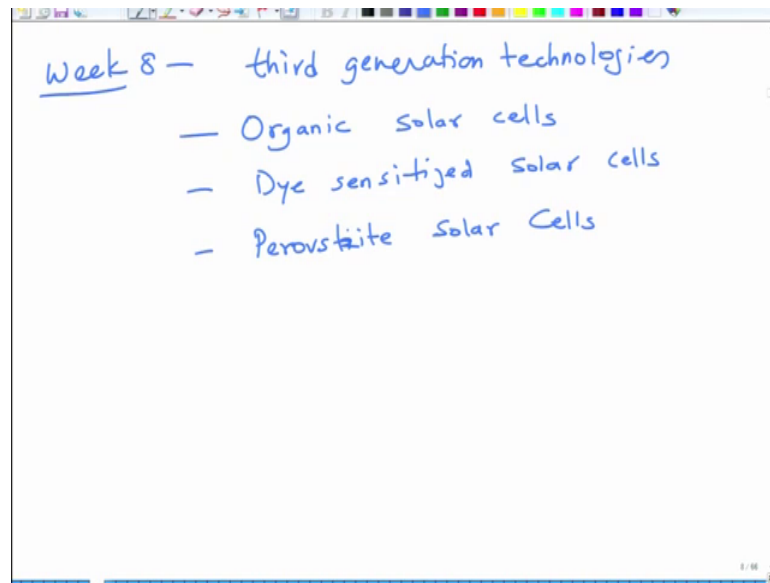 Week 8 — third generation technologies
— Organic solar cells
— Dye sensitized solar cells
— Perovskite Solar Cells
8/66